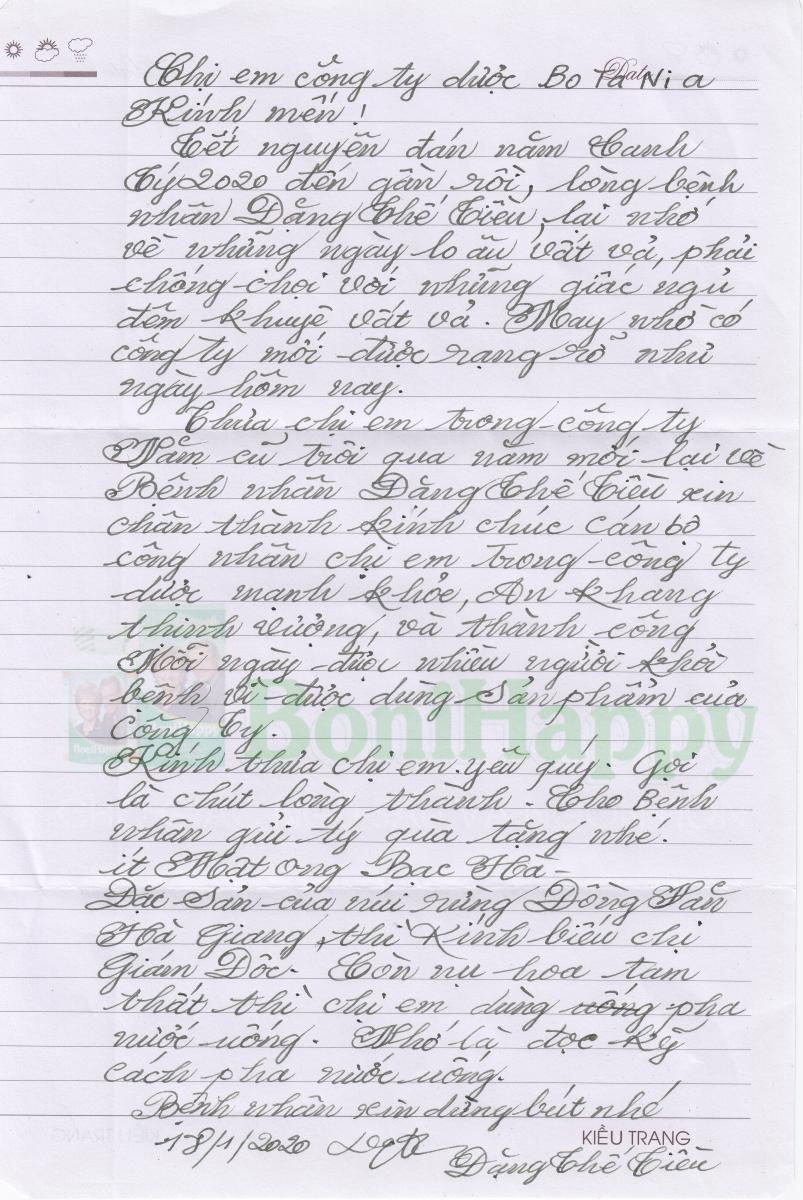 Date
Chị em công ty dược Bo Ta Ni a
Kính mến!
Tết nguyên đán năm Canh
Tý 2020 đến gần rồi, lòng bệnh
nhân Đặng Thế Tiều, lại nhớ
về những ngày lo âu vất vả, phải
chống chọi với những giấc ngủ
đêm khuyê vất vả. May nhờ có
công ty mới được rạng rỡ như
ngày hôm nay.
Thưa chị em trong công ty
Năm cũ trôi qua năm mới lại về
Bệnh nhân Đặng Thế Tiều xin
chân thành kính chúc cán bô
công nhân chị em trong công ty
dược mạnh khỏe, An khang
thịnh vượng, và thành công
Mỗi ngày được nhiều người khỏi
bệnh vì được dùng sản phẩm của
Công Ty.
BoniHappy
Kính thưa chị em yêu quý. Gọi
là chút lòng thành. Cho Bệnh
nhân gửi tý quà tặng nhé.
ít Mật ong Bạc Hà -
Đặc Sản của núi rừng Đồng Văn
Hà Giang, thì Kính biếu chị
Giám Đốc. Còn nụ hoa tam
thất thì chị em dùng uống pha
nước uống. Nhớ là đọc kỹ
cách pha nước uống.
Bệnh nhân xin dừng bút nhé
KIỀU TRANG
18/1/2020
Đặng Thế Tiều